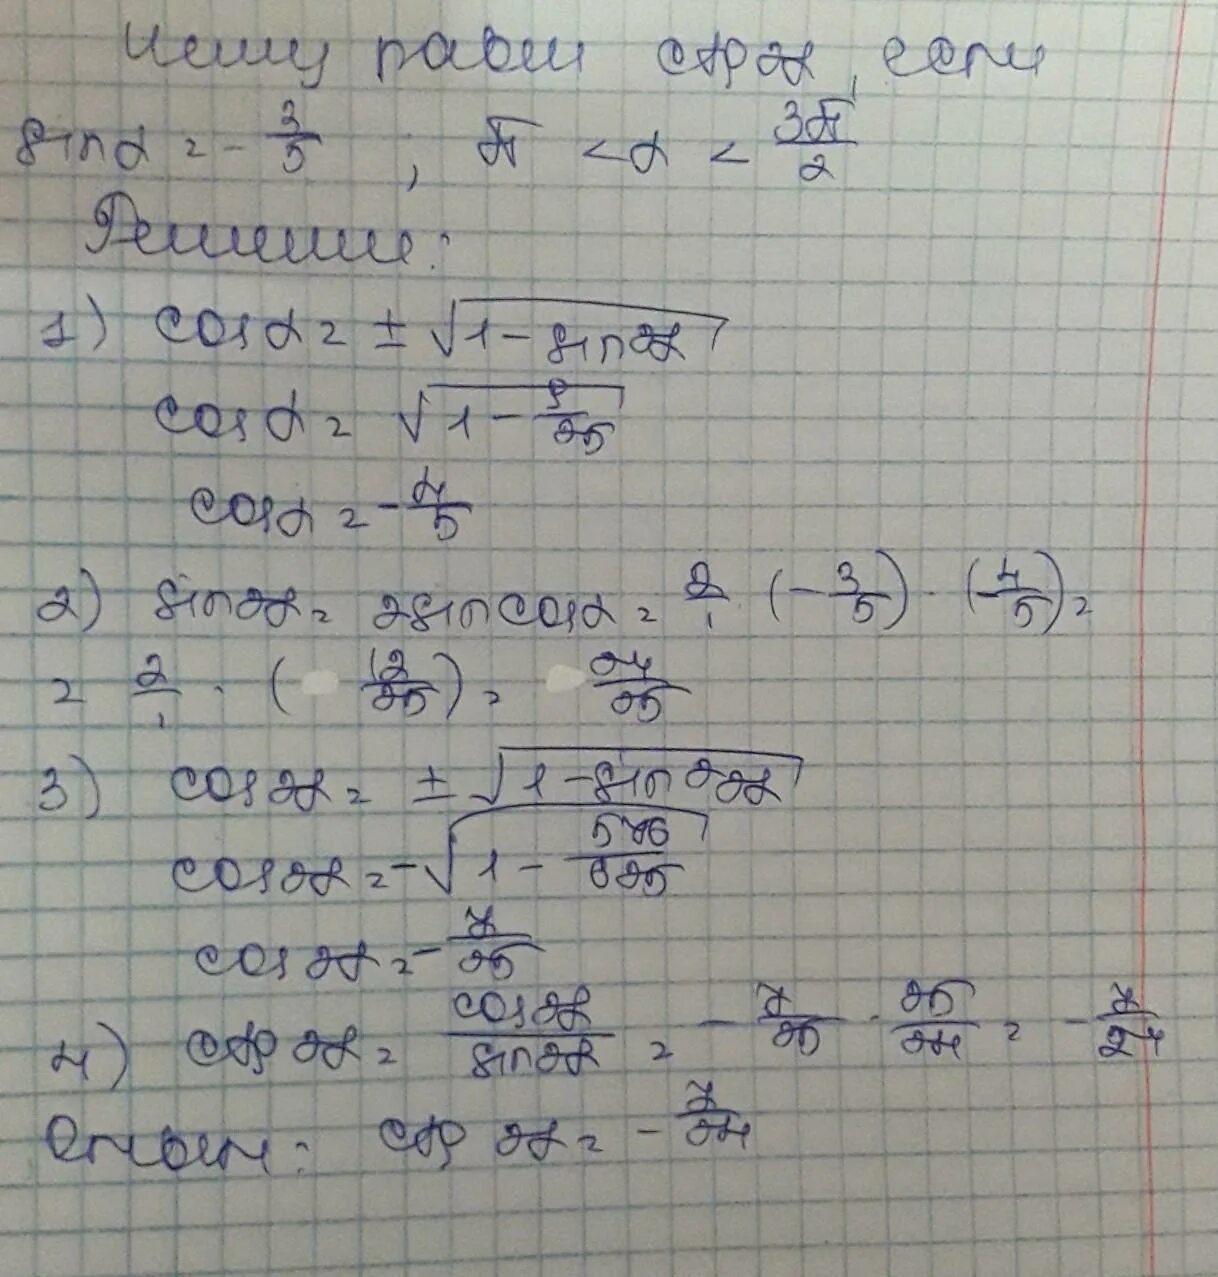 Чему равен ctg 2α, если
sin α = - 3/5 ; π < α < 3π/2
Решение:
1) cos α = ± √1 - sin²α
cos α = √1 - 9/25
cos α = - 4/5
2) sin 2α = 2sin cos α = 2/1 · (- 3/5) · (- 4/5) =
= 2/1 · ( 12/25 ) = 24/25
3) cos 2α = ± √1 - sin² 2α
cos 2α = - √1 - 576/625
cos 2α = - 7/25
4) ctg 2α = cos 2α/sin 2α = - 7/25 · 25/24 = - 7/24
Ответ: ctg 2α = - 7/24